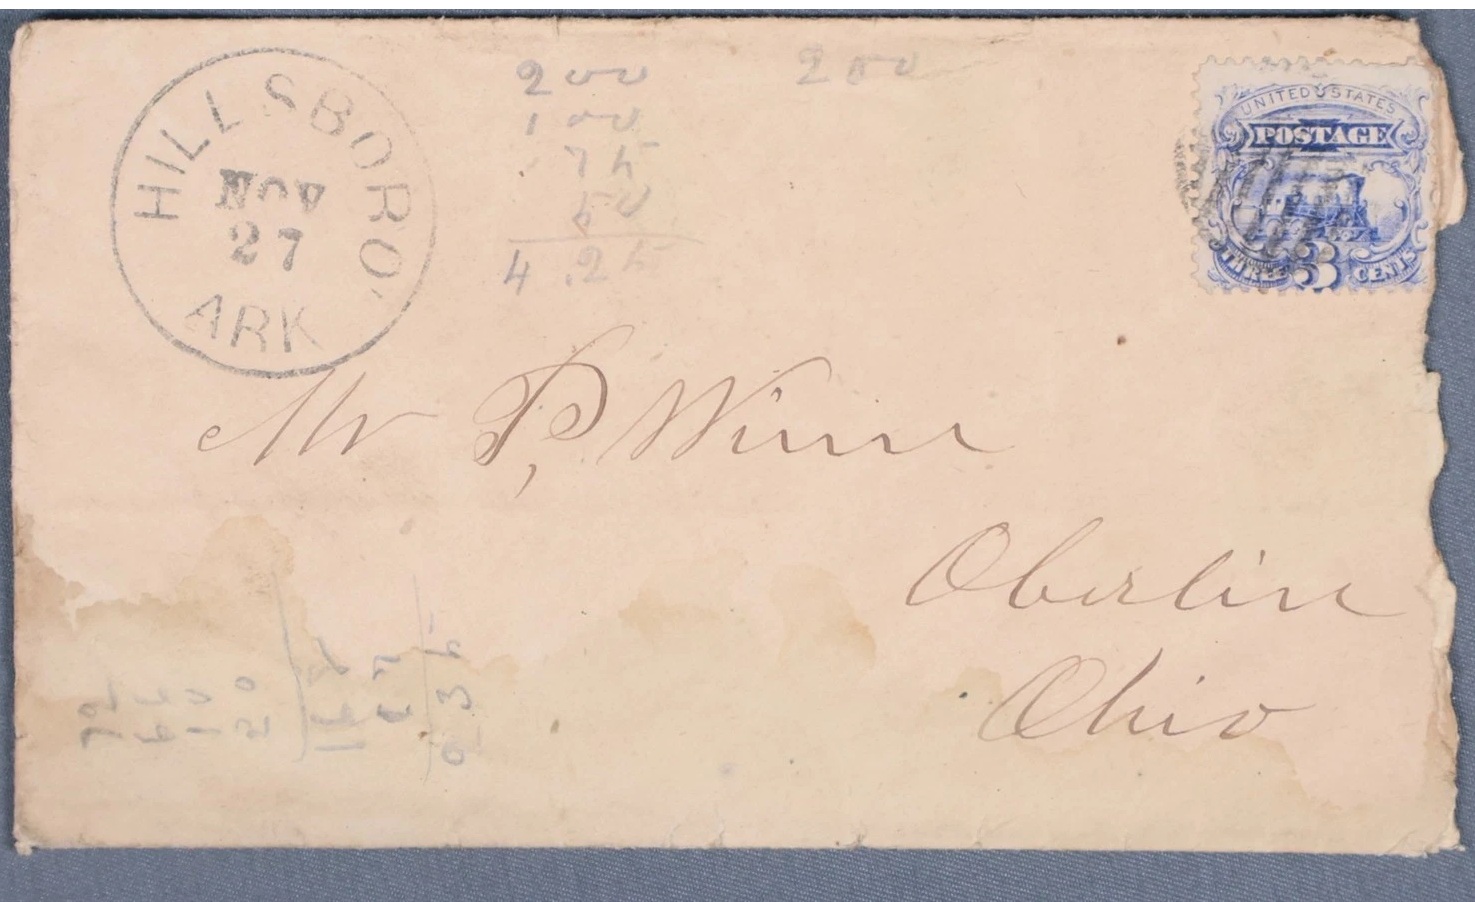 HILLSBORO'
NOV
27
ARK
200
100
75
50
4.25
200
UNITED STATES
POSTAGE
THREE 3 CENTS
Mr P, Winn
Oberlin
Ohio